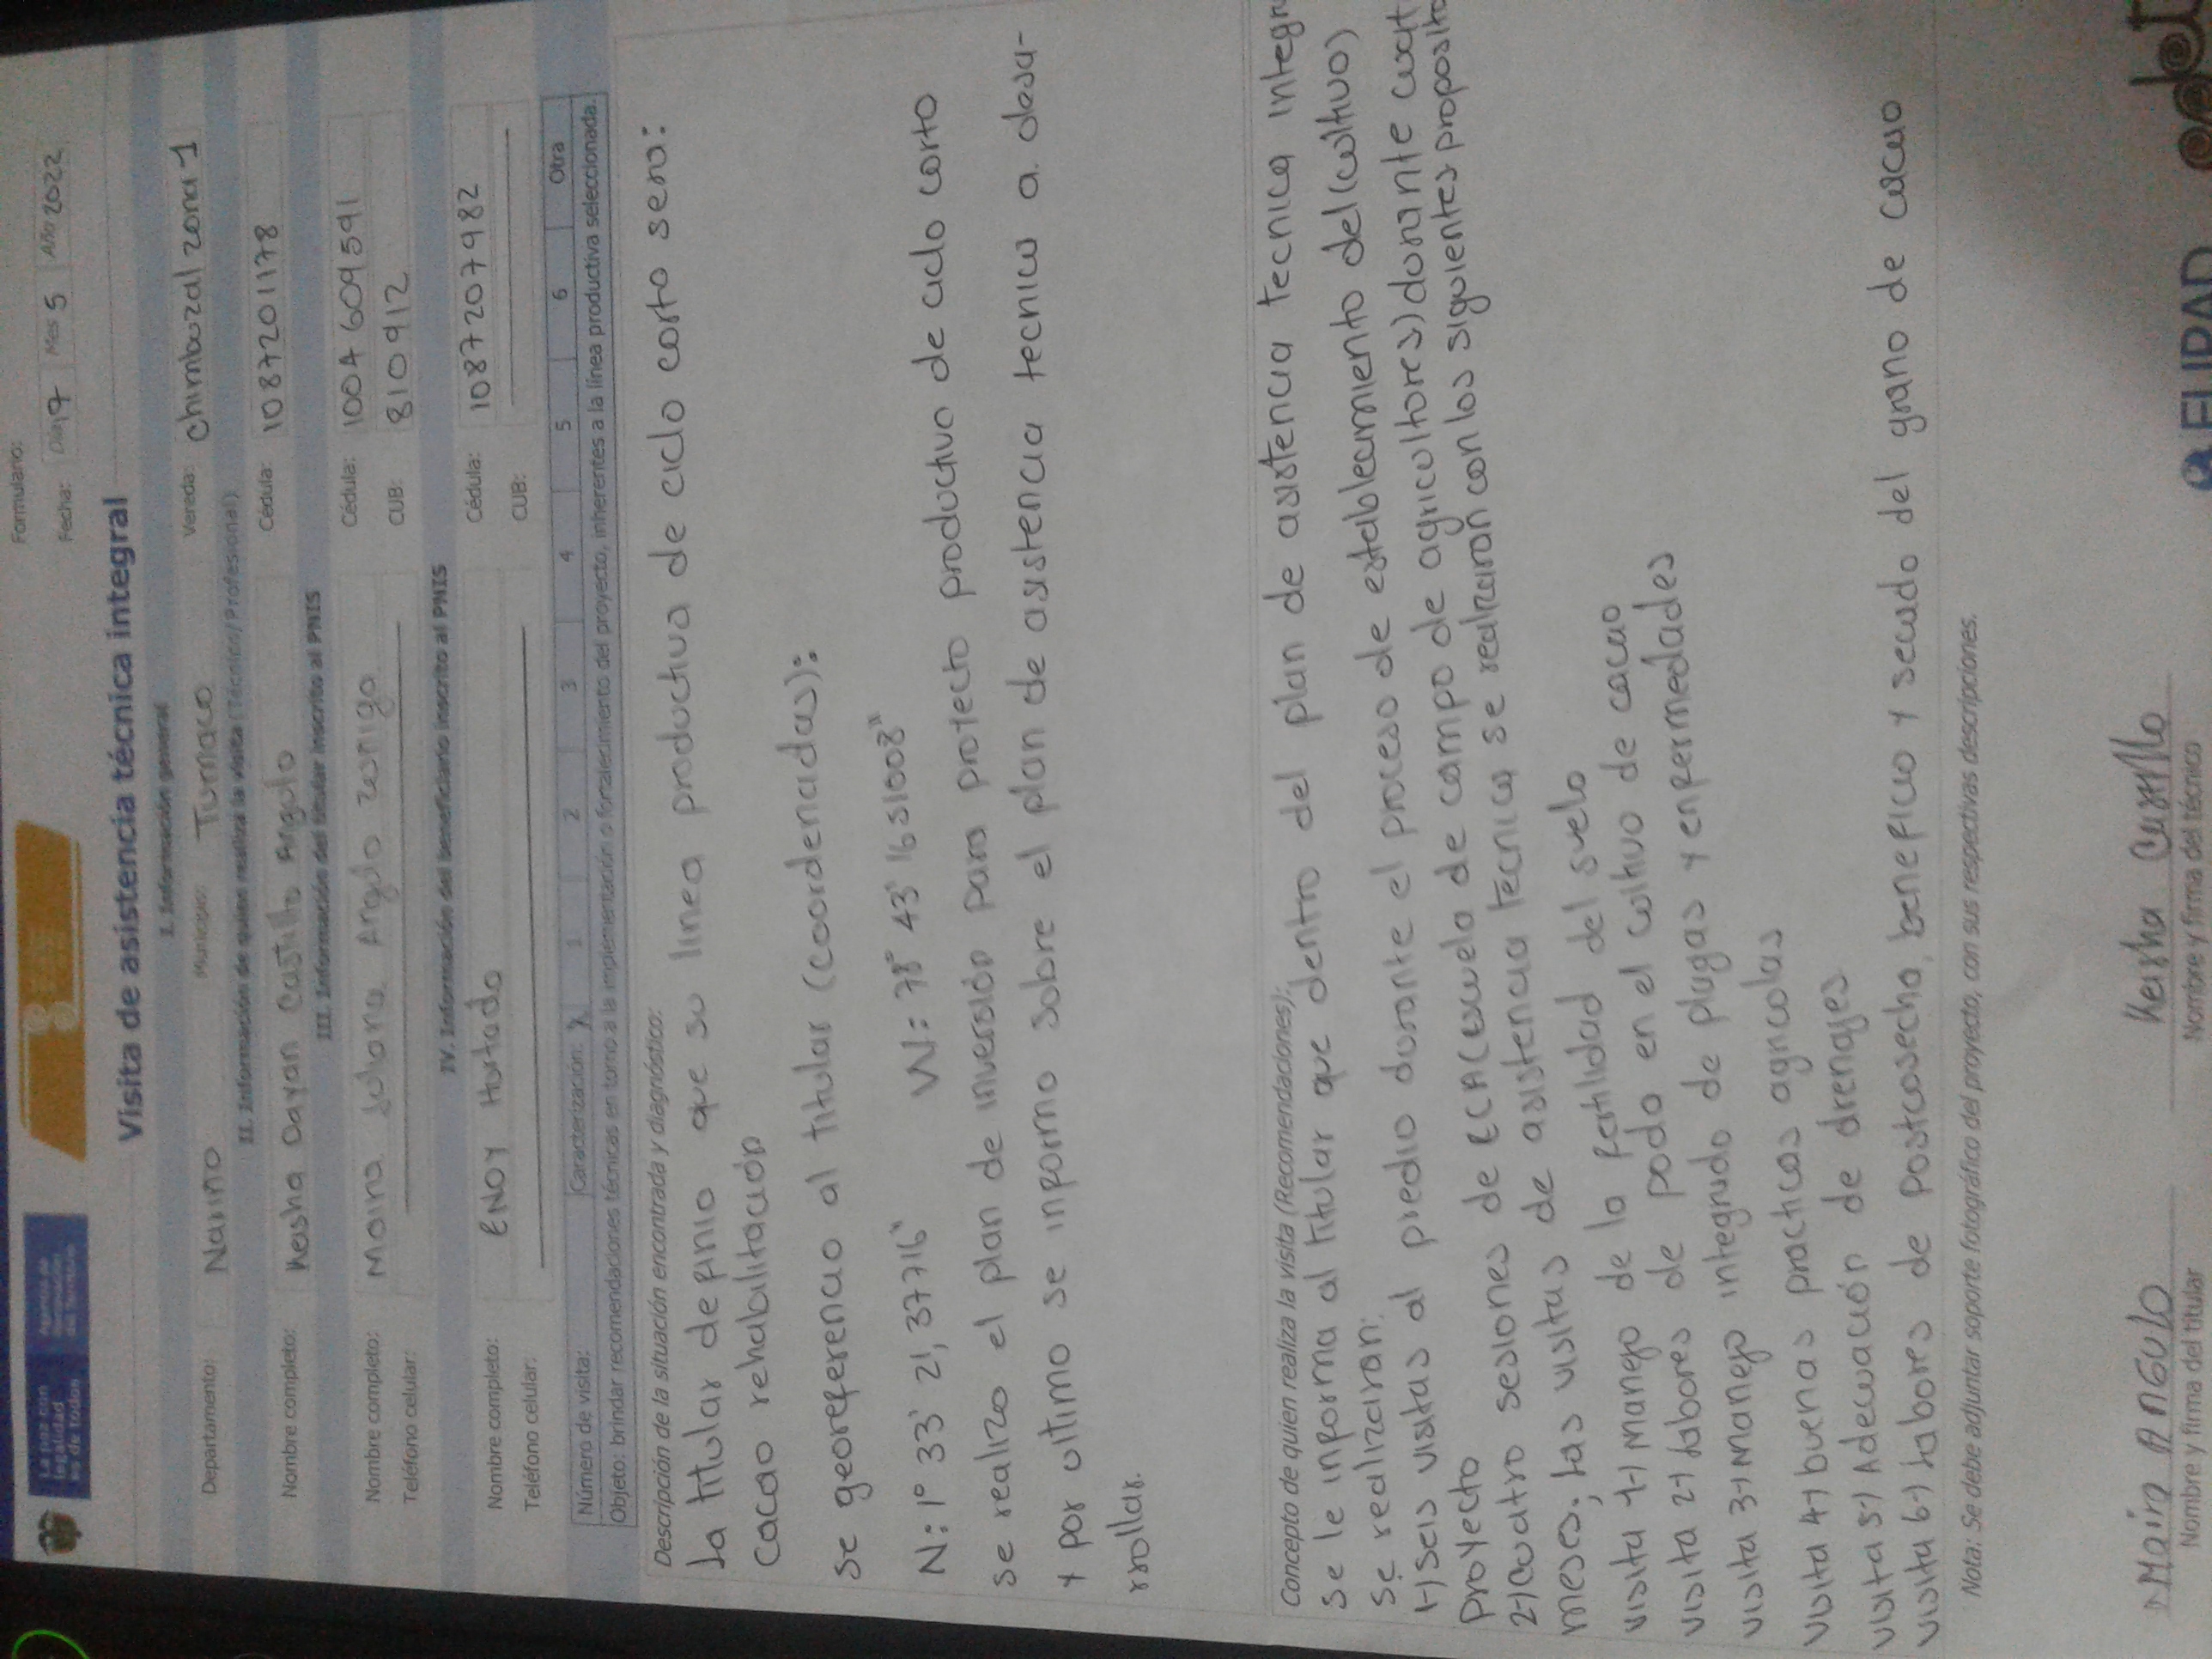 La paz con
legalidad
es de todos
Agencia de
Renovación
del Territorio
Formulario:
Fecha: Día 7 Mes 5 Año 2022
Visita de asistencia técnica integral
I. Información general
Departamento: Nariño Municipio: Tumaco Vereda: Chimbuzal zona 1
II. Información de quien realiza la visita (Técnico/ Profesional)
Nombre completo: Kesha Dayan Castillo Angulo Cédula: 1087201178
III. Información del titular inscrito al PNIS
Nombre completo: Moira Juliana Angulo Zuniga Cédula: 1004609591
Teléfono celular: CUB: 810912
IV. Información del beneficiario inscrito al PNIS
Nombre completo: ENOY Hurtado Cédula: 1087207982
Teléfono celular: CUB:
Número de visita: Caracterización: X 1 2 3 4 5 6 Otra
Objeto: brindar recomendaciones técnicas en torno a la implementación o fortalecimiento del proyecto, inherentes a la línea productiva seleccionada.
Descripción de la situación encontrada y diagnóstico:
La titular definio que su linea productiva de ciclo corto sera:
Cacao rehabilitación
se georeferencio al titular (coordenadas):
N: 1° 33' 21,37716" W: 78° 43' 16 51008"
se realizo el plan de inversión para protecto productivo de ciclo corto
y por ultimo se informo sobre el plan de asistencia tecnica a desa-
rrollar.
Concepto de quien realiza la visita (Recomendaciones):
se le informa al titular que dentro del plan de asistencia tecnica integra
se realizaran:
1-) seis visitas al predio durante el proceso de establecimiento del (cultivo)
proyecto
2-) cuatro sesiones de ECA (escuela de campo de agricultores) durante cuatr
meses, las visitas de asistencia tecnica se realizaran con los siguientes proposito
visita 1-) manejo de la fertilidad del suelo
visita 2-) labores de poda en el cultivo de cacao
visita 3-) manejo integrado de plagas y enfermedades
visita 4-) buenas practicas agricolas
visita 5-) Adecuación de drenajes
visita 6-) labores de postcosecha, beneficio y secado del grano de cacao
Nota: Se debe adjuntar soporte fotográfico del proyecto, con sus respectivas descripciones.
Moira ANGULO
Nombre y firma del titular
Kesha Castillo
Nombre y firma del técnico